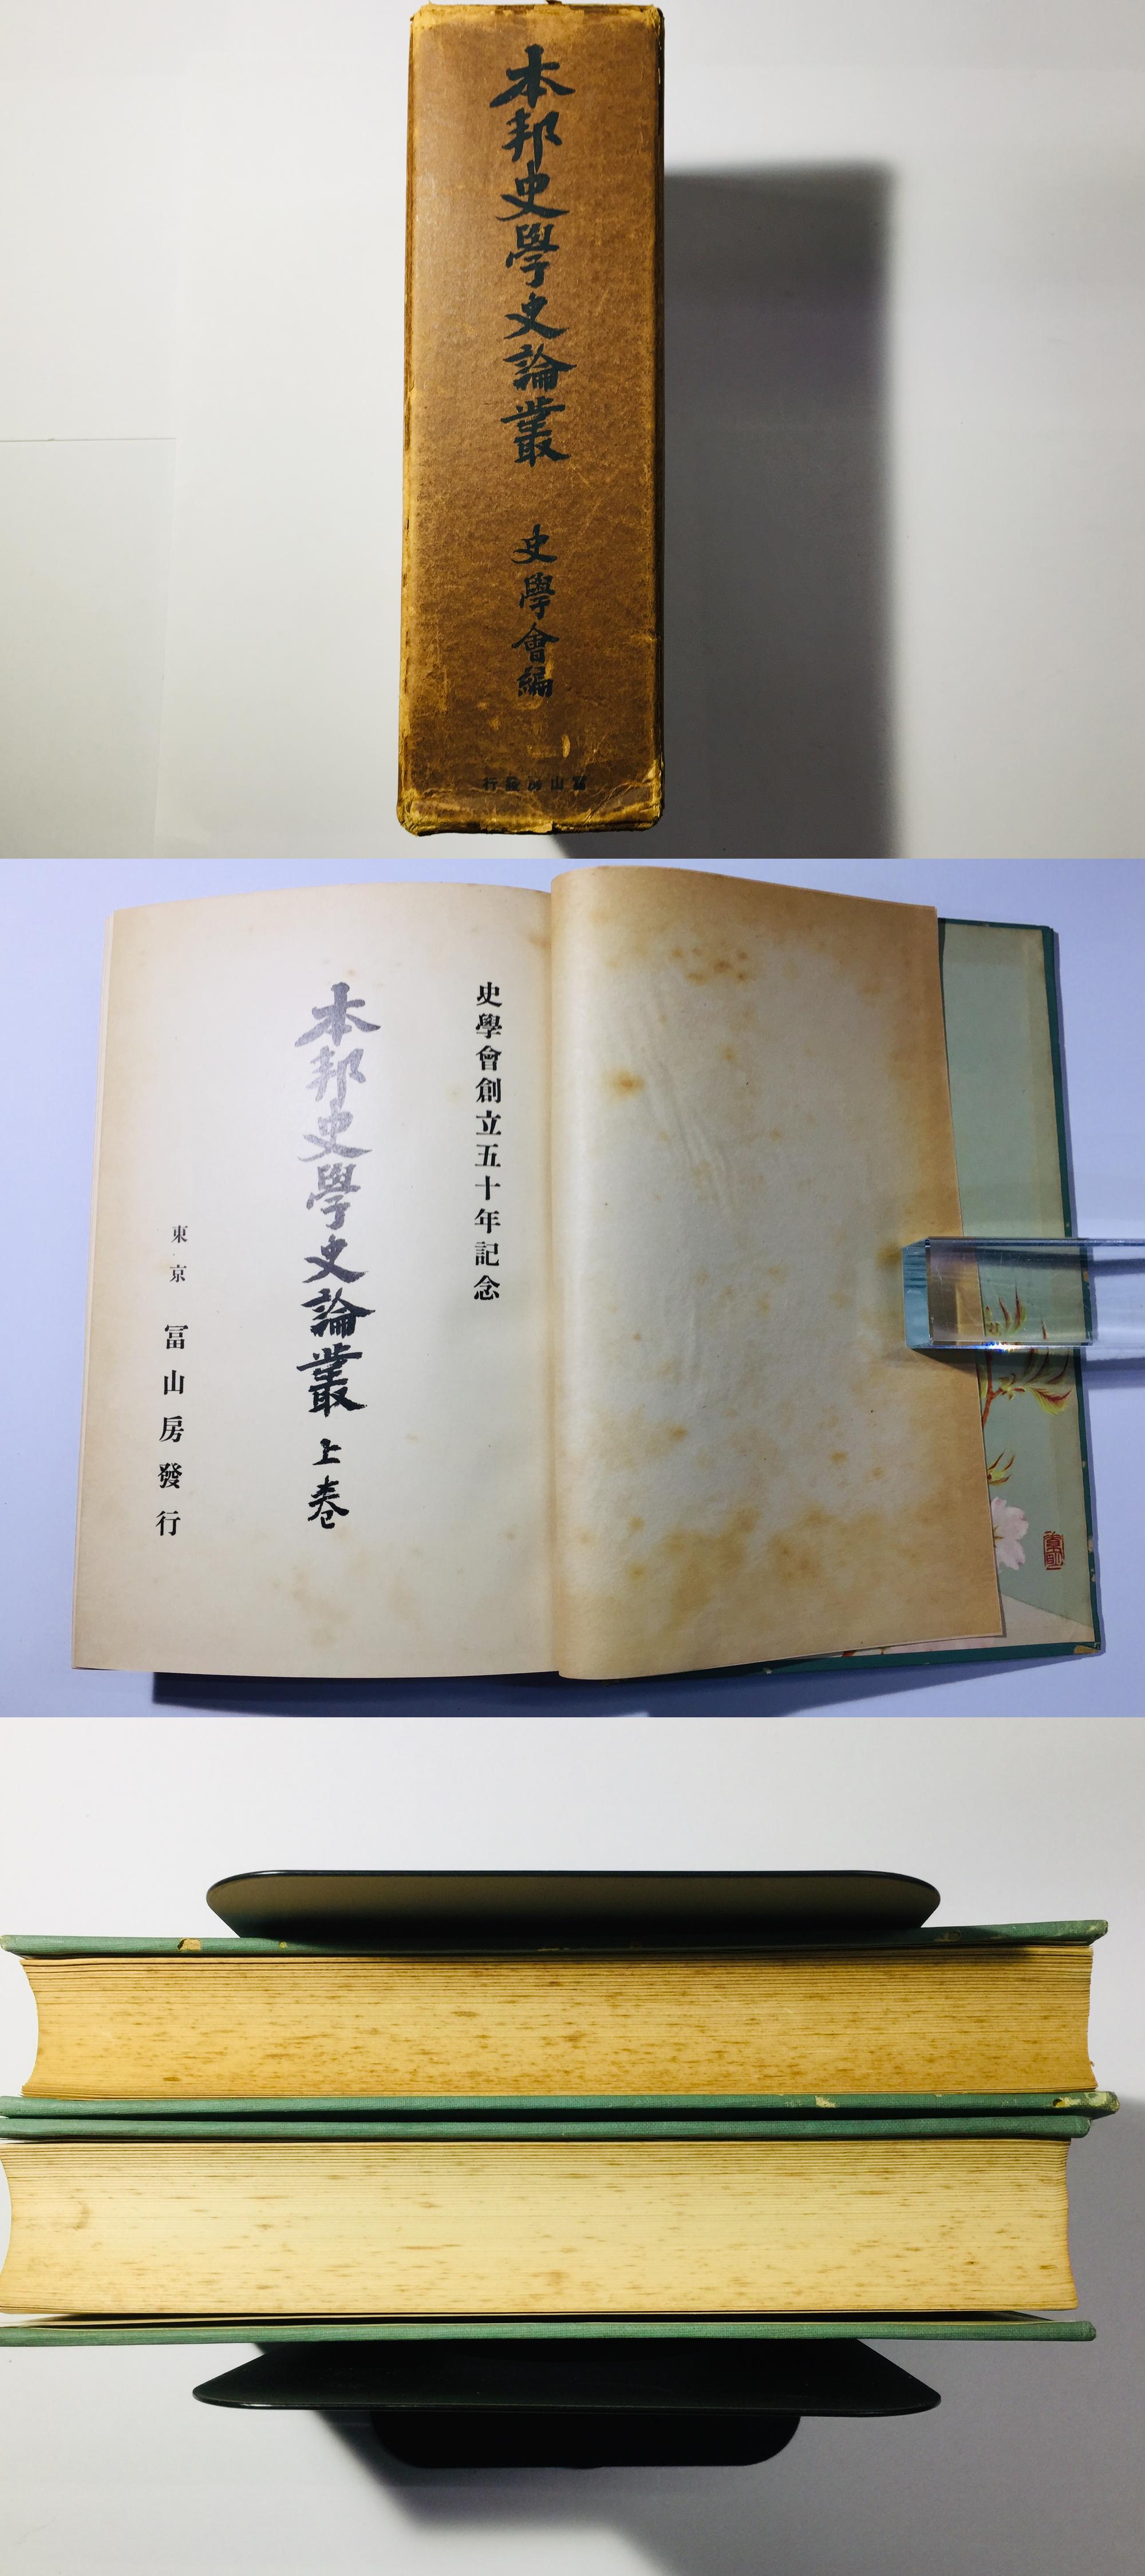 本邦史學史論叢
史學會編
冨山房發行
史學會創立五十年記念
本邦史學史論叢 上卷
東京 冨山房發行